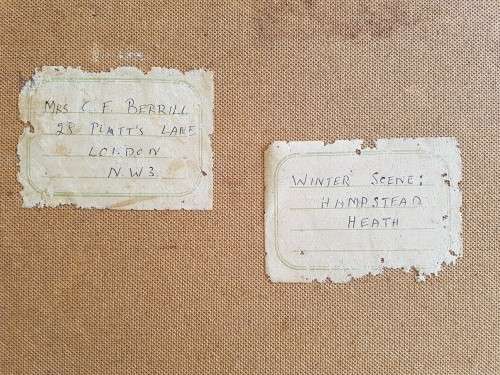 MRS C. F. BERRILL
28 PLATT'S LANE
LONDON
N.W3.
WINTER SCENE:
HAMPSTEAD
HEATH